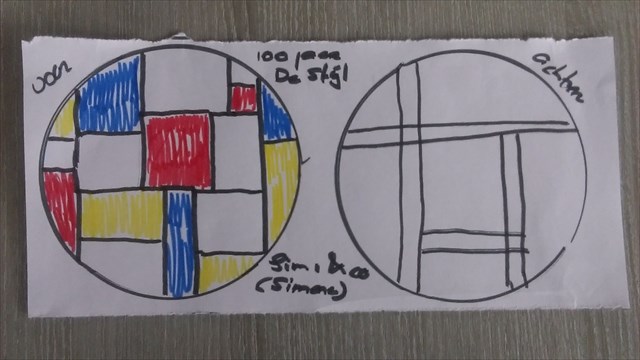 voor
100 jaar
De Stijl
achter
Simi & co
(Simone)